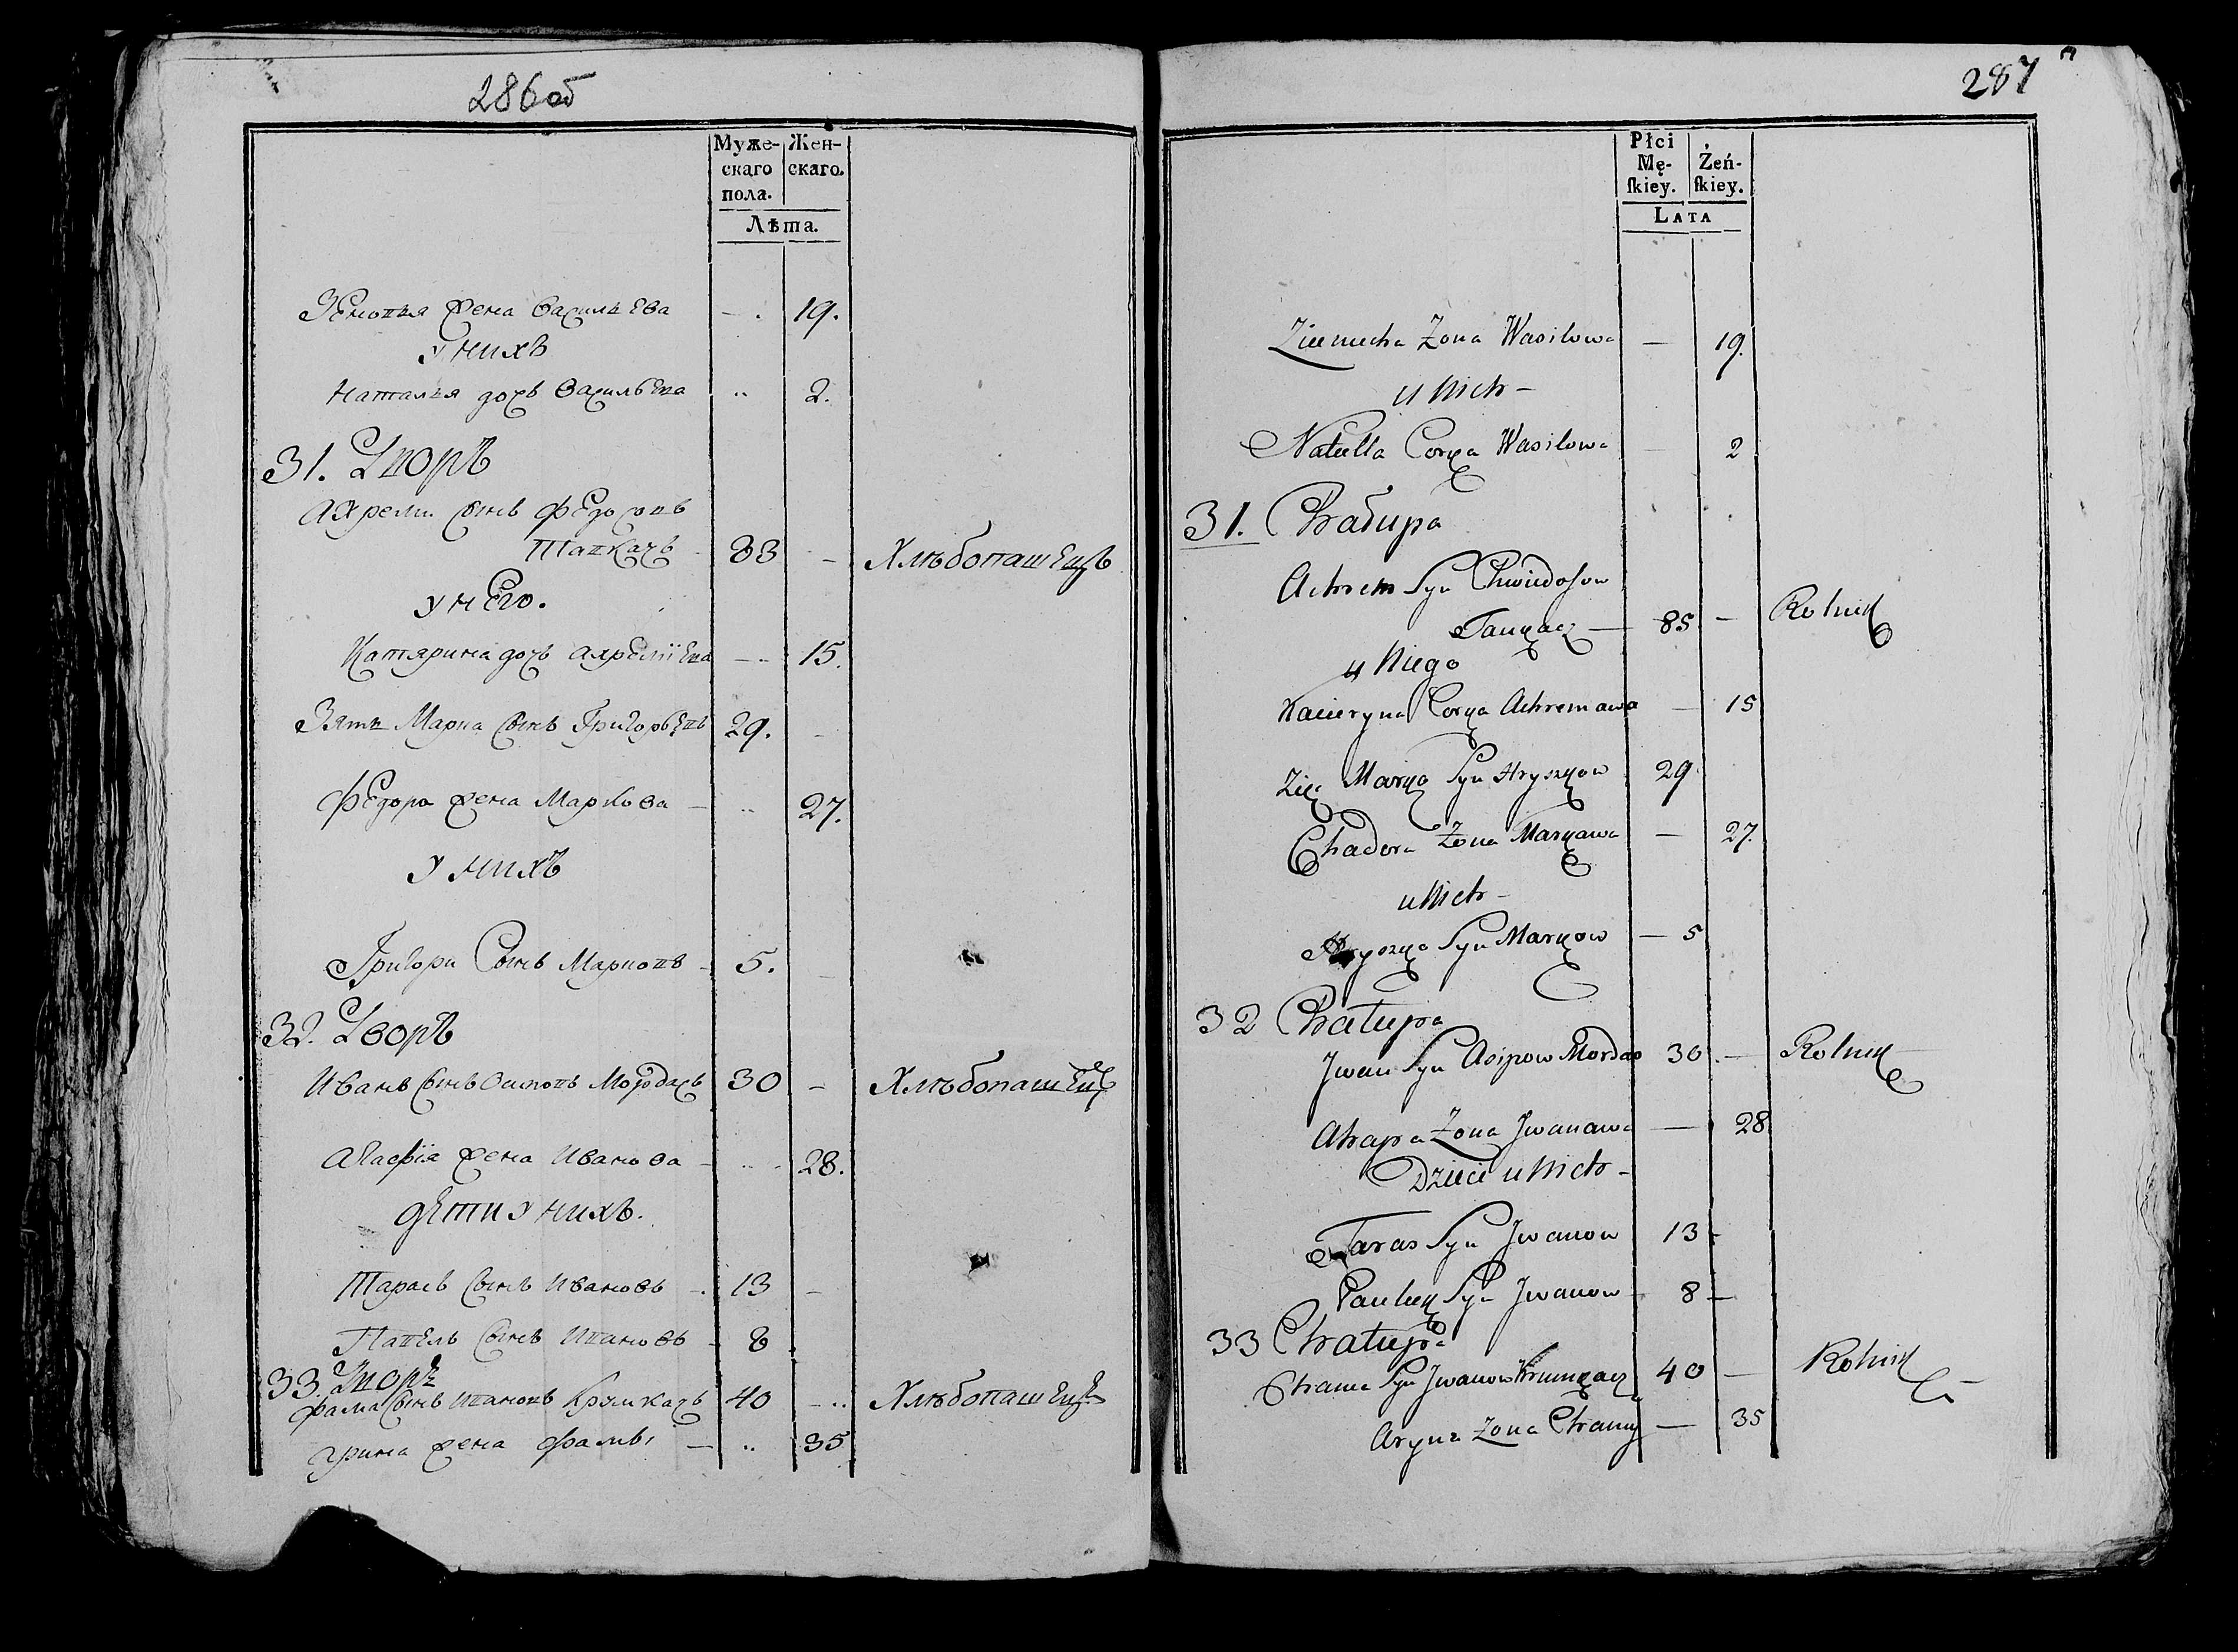 286об
Муже-
скаго
пола.
Жен-
скаго.
Лѣта.
жена Василева
19.
у нихъ
Наталья дочь Васильева
2.
31. Дворъ
Ахремъ сынъ Федосовъ
83
Хлѣбопашецъ
у него.
Катярина дочь Ахремиева
15.
Зять Марка сынъ Григорьевъ
29.
Федора жена Маркова
27.
у нихъ
Григори сынъ Марковъ
5.
32. Дворъ
Иванъ сынъ Осиповъ Мордасъ
30
Хлѣбопашецъ
Агафія жена Иванова
28.
дети у нихъ.
Тарасъ сынъ Ивановъ
13
Павелъ сынъ Ивановъ
8
33. Дворъ
Фама сынъ Ивановъ
40
Хлѣбопашецъ
жена Фамы
35
287
Płci
Mę-
ſkiey.
Żeń-
ſkiey.
Lata
Żona Wasilowa
19.
u Nich
Natella Corka Wasilowa
2
31. Chałupa
Achrem Syn Chwiedosow
85
Rolnik
u Niego
Kacieryna Corka Achremawa
15
Zięć Marko Syn Hryszkow
29
Chadora Żona Markawa
27.
u Nich
Hryszka Syn Markow
5
32 Chałupa
Jwan Syn Asipow Mordas
30
Rolnik
Ahapa Żona Jwanawa
28
Dzieci u Nich
Taras Syn Jwanow
13
Pauluk Syn Jwanow
8
33 Chałupa
Chama Syn Jwanow
40
Rolnik
Aryna Żona Chamy
35